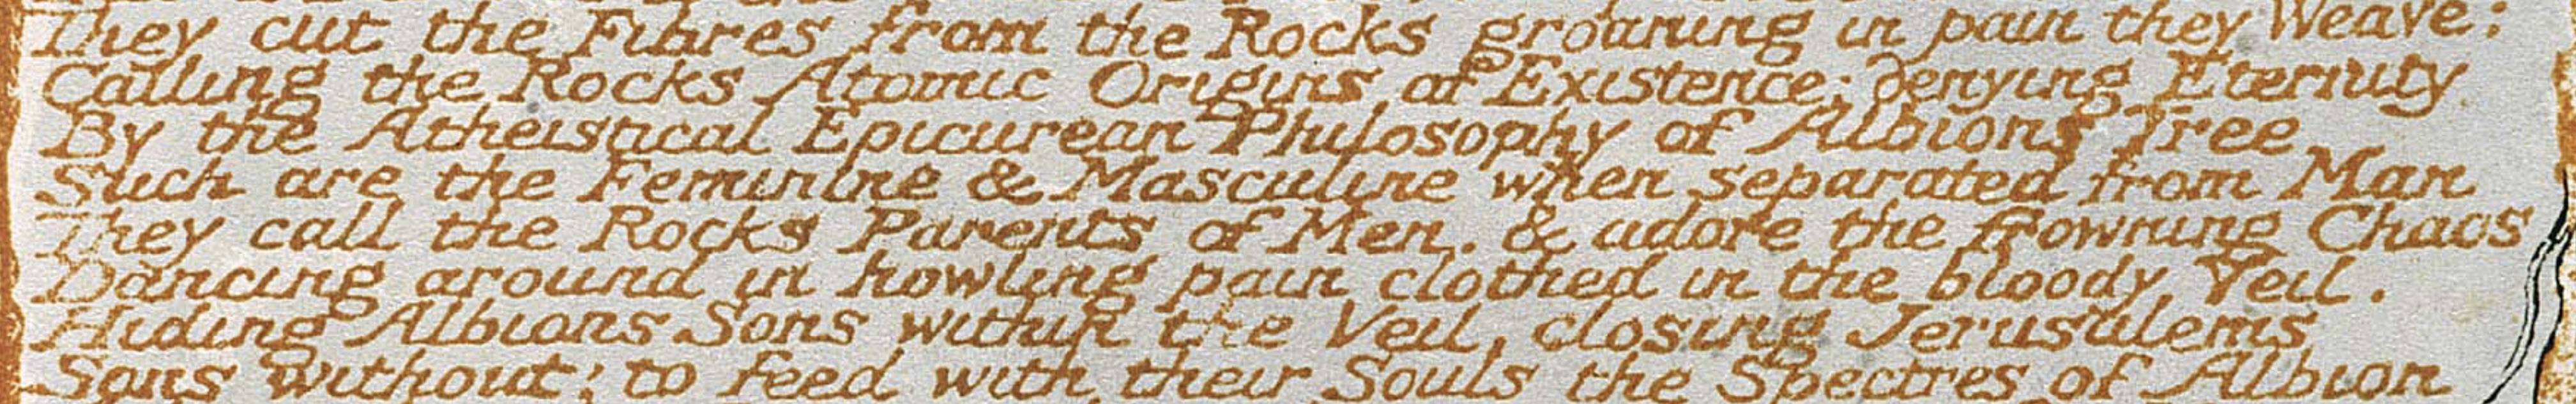 They cut the Fibres from the Rocks groaning in pain they Weave;
Calling the Rocks Atomic Origins of Existence; denying Eternity
By the Atheistical Epicurean Philosophy of Albions Tree
Such are the Feminine & Masculine when separated from Man
They call the Rocks Parents of Men, & adore the frowning Chaos
Dancing around in howling pain clothed in the bloody Veil.
Hiding Albions Sons within the Veil, closing Jerusalems
Sons without; to feed with their Souls the Spectres of Albion